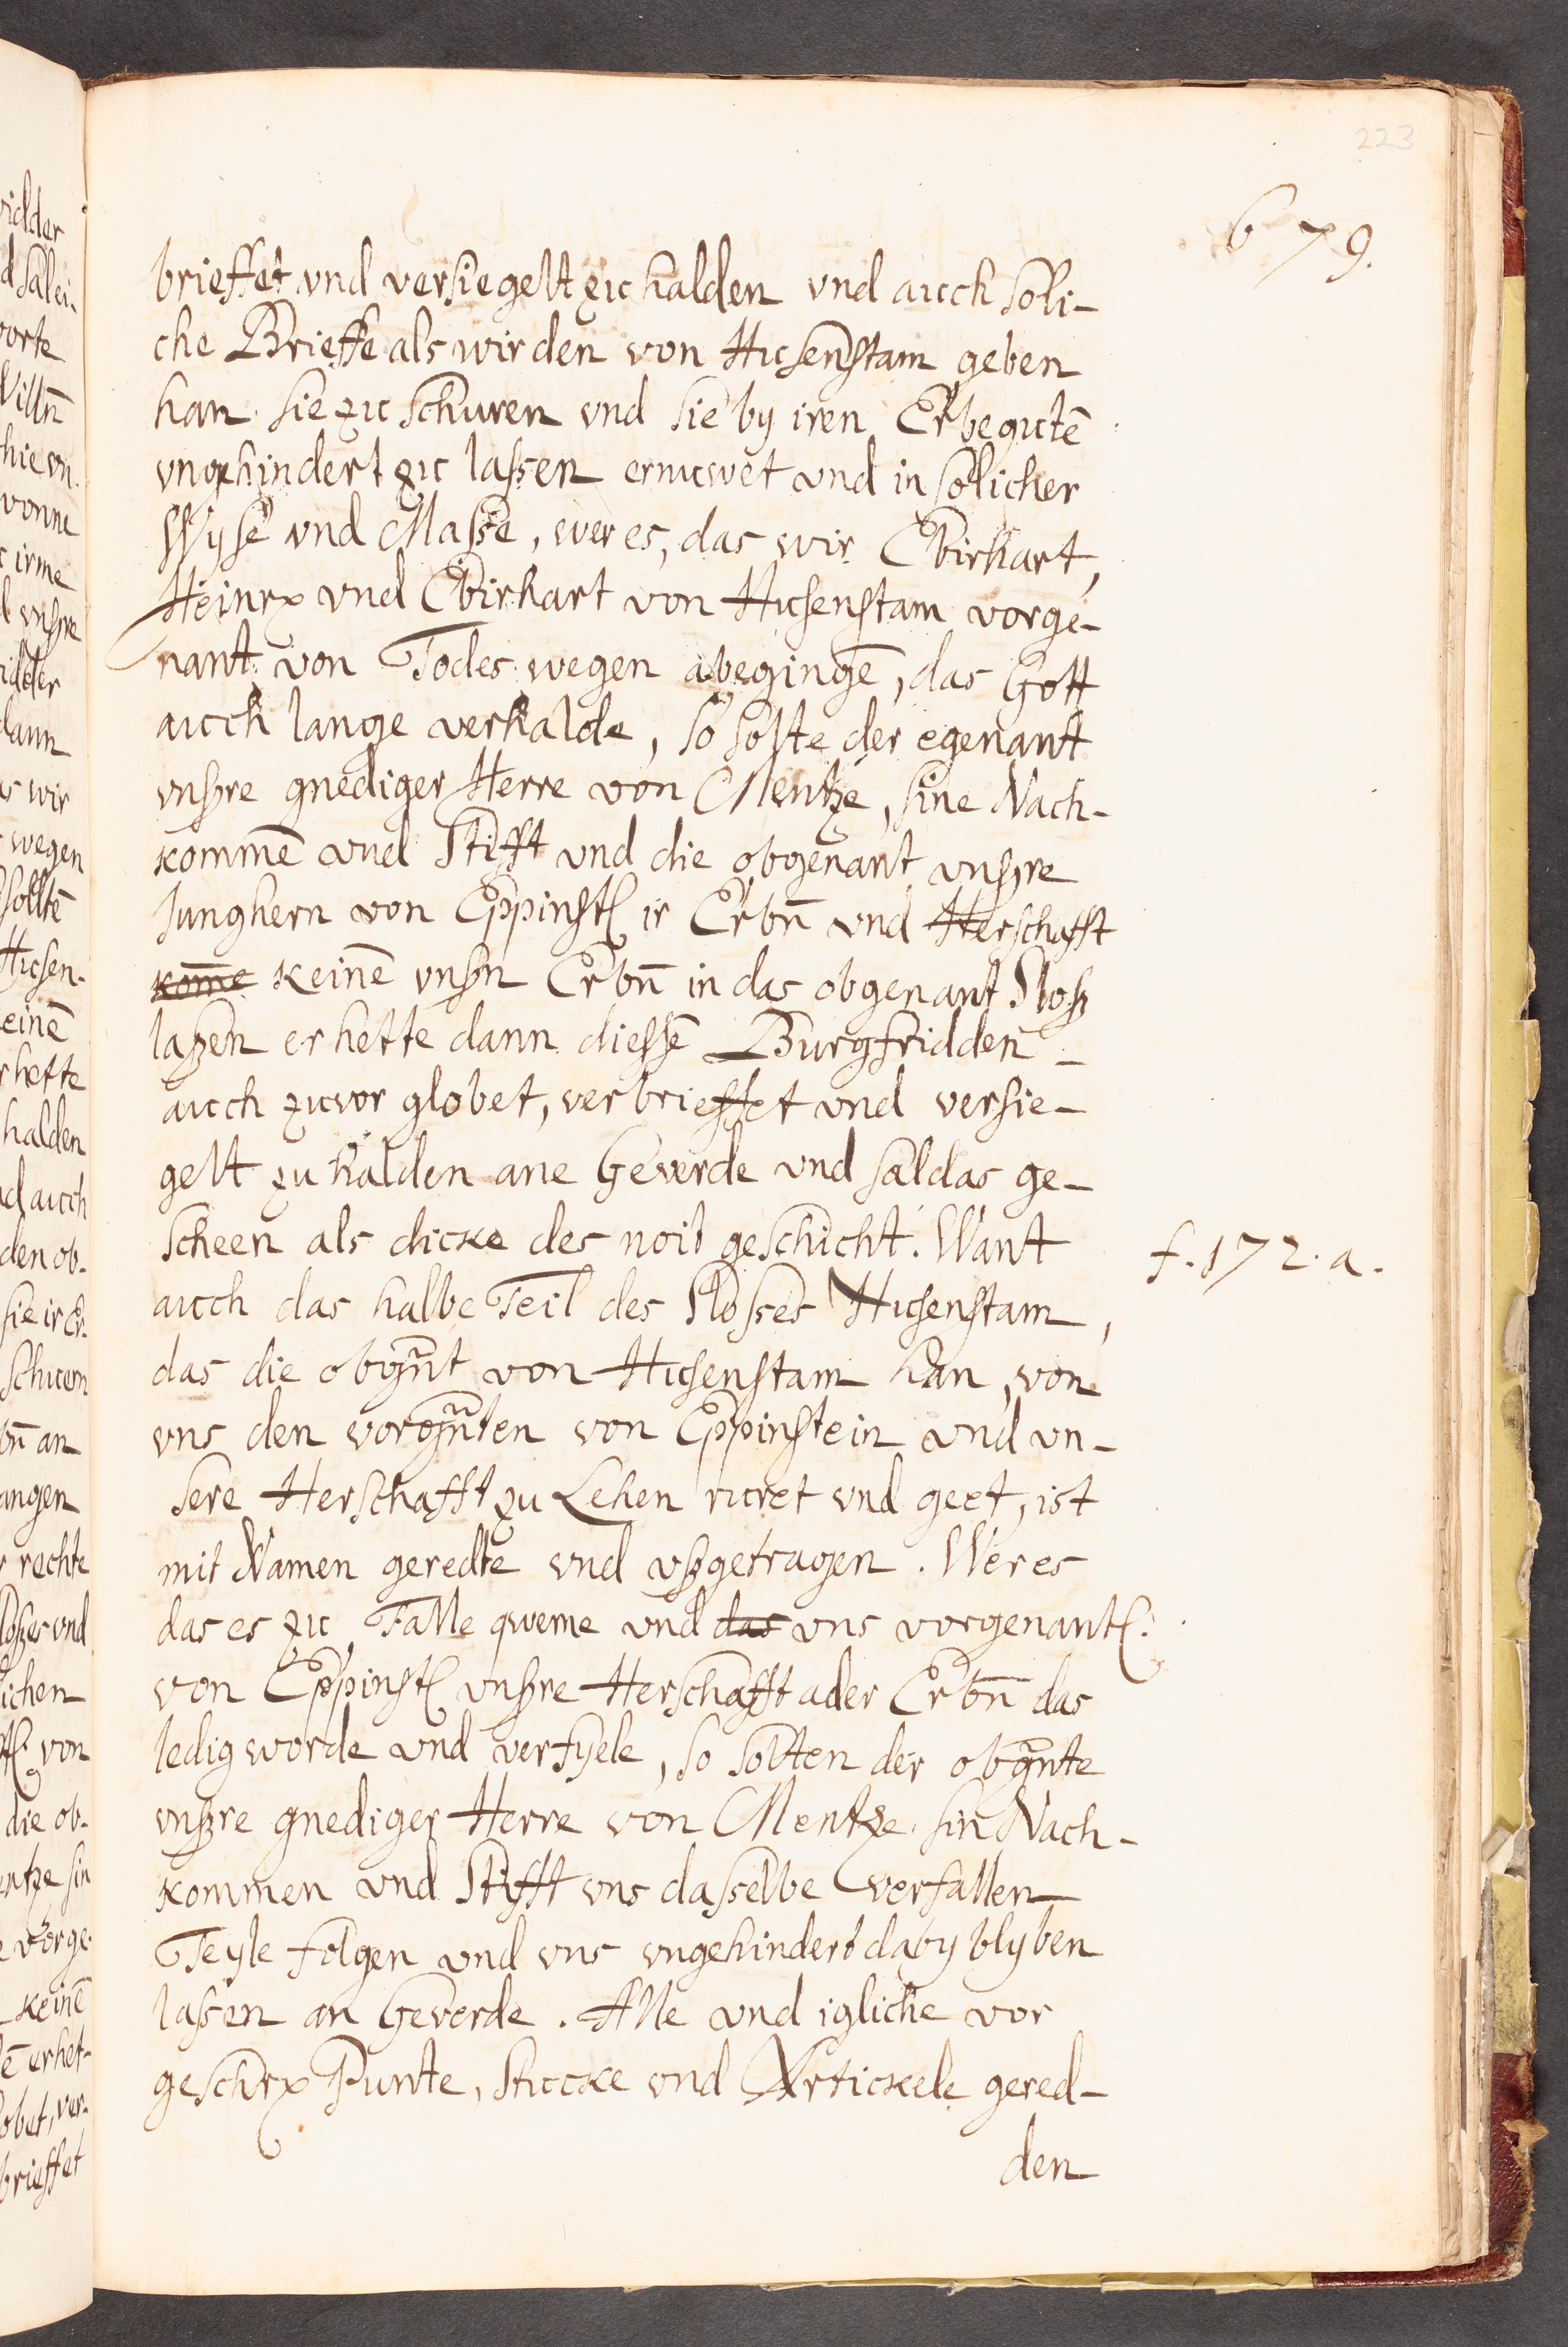 223
679.
brieffet vnd versiegelt zu halden vnd auch soli-
che Brieffe als wir den von Husenstam geben
han sie zu schuren vnd sie by iren Erbegutē
vngehindert zu lassen ernuwet vnd in solicher
Wyse vnd Masse, wer es, das wir Ebirhart,
Heinrx vnd Ebirhart von Husenstam vorge-
nant von Todes wegen abegingē, das Gott
auch lange verhalde, so solte der egenant
vnßre gnediger Herre von Mentze, sine Nach-
kommē vnd Stifft vnd die obgenant vnßre
Junghern von Eppinstꝭ ir Erbn̄ vnd Herschafft
kom̄e keinē vnsn Erbn̄ in das obgenant Sloß
laßen er hette dann diessē Burgfridden
auch zuvor globet, verbrieffet vnd versie-
gelt zu halden ane Geverde vnd sal das ge-
scheen als dicke des noit geschicht. Want
f. 172. a.
auch das halbe Teil des Slosses Husenstam,
das die obgn̄t von Husenstam han, von
vns den vorgn̄ten von Eppinstein vnd vn-
sere Herschafft zu Lehen ruret vnd geet, ist
mit Namen geredte vnd vßgetragen. Wer es
das es zu Falle qweme vnd das vns vorgenantꝭ
von Eppinstꝭ vnßre Herschafft ader Erbn̄ das
ledig worde vnd verfyele, so solten der obgn̄te
vnßre gnediger Herre von Mentze sin Nach-
kommen vnd Stifft vns dasselbe verfallen
Teyle folgen vnd vns vngehindert daby blyben
lassen an Geverde. Alle vnd igliche vor
geschrx Punte, Stucke vnd Artickele gered-
den